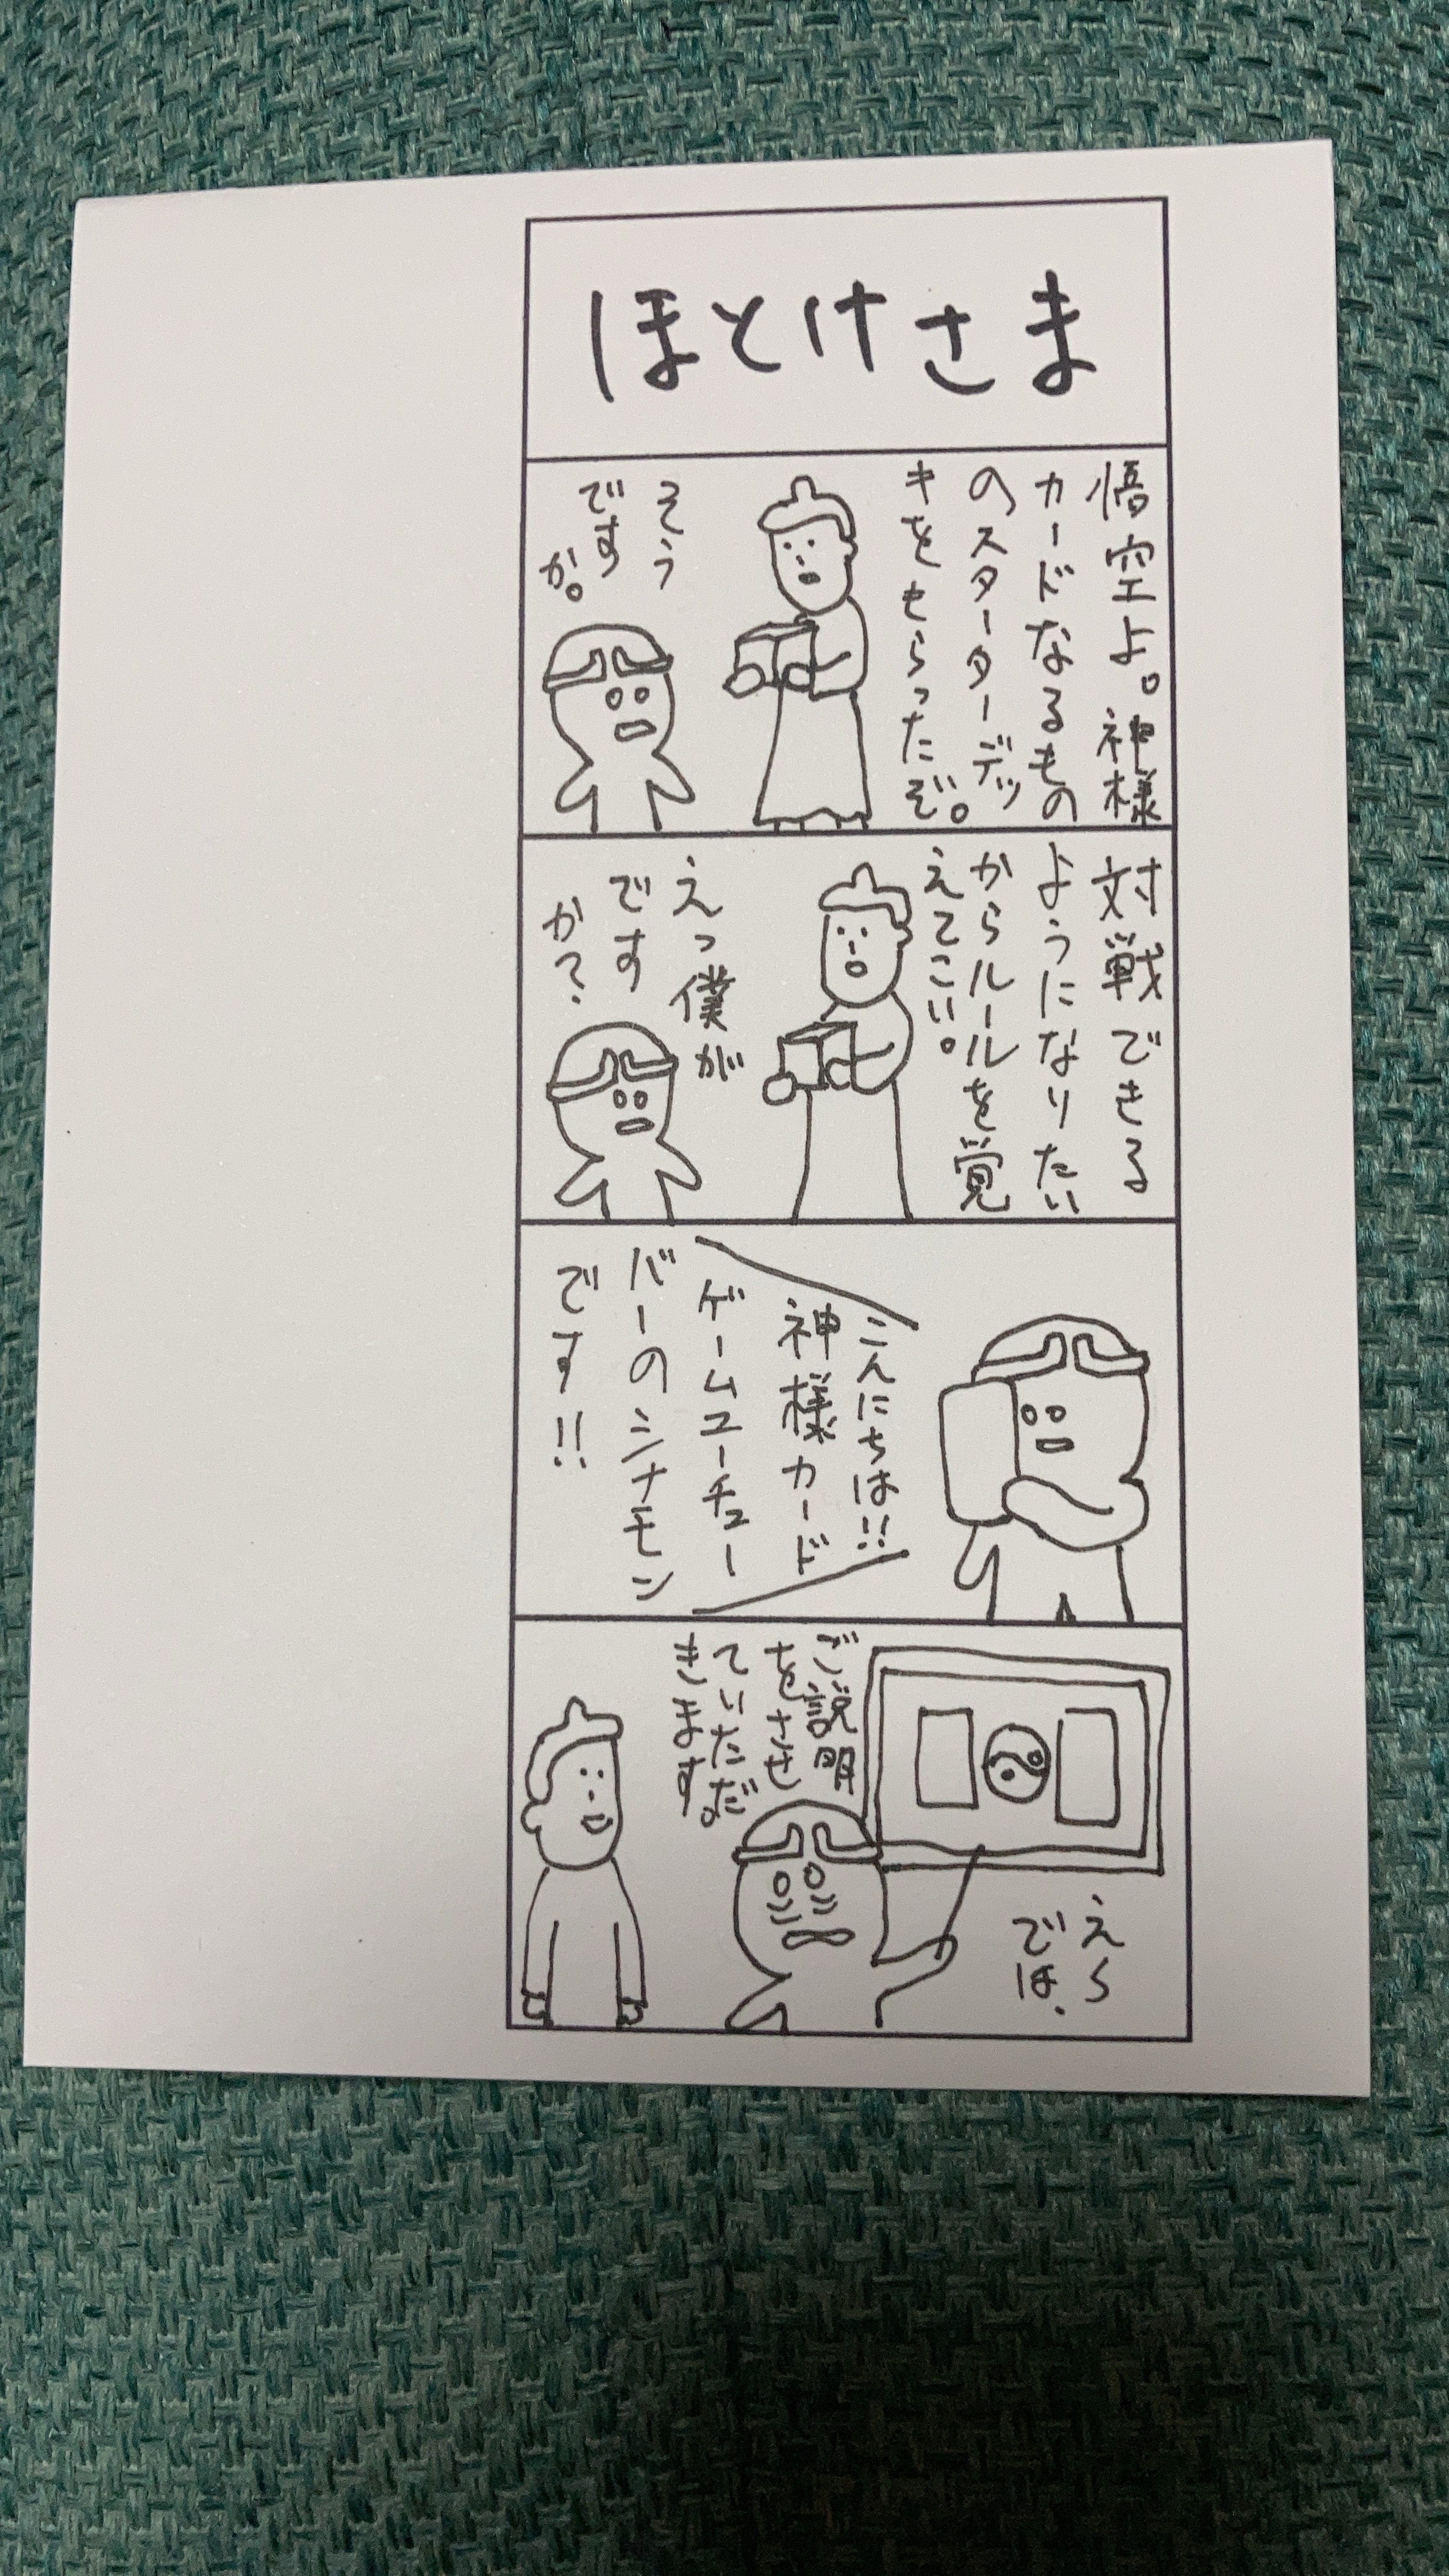 ほとけさま
悟空よ。神様
カードなるもの
のスターターデッ
キをもらったぞ。
そう
です
か。
対戦できる
ようになりたい
からルールを覚
えてこい。
えっ僕が
です
か?
こんにちは!!
神様カード
ゲームユーチュー
バーのシナモン
です!!
えら
では、
ご説明
をさせ
ていただ
きます。